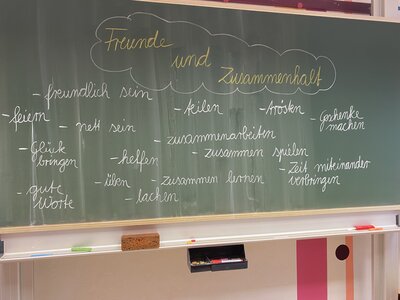 Freunde
und
Zusammenhalt
- freundlich sein
- feiern
- teilen
- trösten
- Geschenke
machen
- nett sein
- zusammenarbeiten
- Glück
bringen
- helfen
- zusammen spielen
- Zeit miteinander
verbringen
- üben
- zusammen lernen
- gute
Worte
- lachen